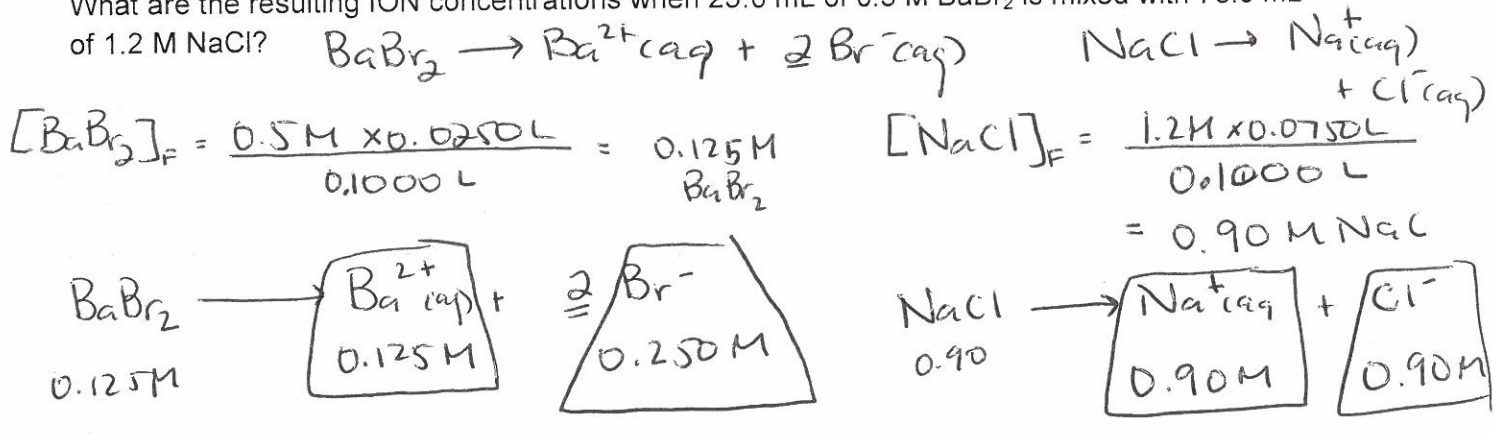 What are the resulting ION concentrations when 25.0 mL of 0.5 M BaBr₂ is mixed with 75.0 mL
of 1.2 M NaCl? BaBr₂ → Ba²⁺(aq + 2 Br⁻(aq) NaCl → Na⁺(aq)
+ Cl⁻(aq)
[BaBr₂]F = 0.5M × 0.0250L / 0.1000 L = 0.125M BaBr₂
[NaCl]F = 1.2M × 0.0750L / 0.1000 L
= 0.90 M NaC
BaBr₂ → Ba²⁺(aq) + 2 Br⁻
0.125M 0.125M 0.250M
NaCl → Na⁺(aq + Cl⁻
0.90 0.90M 0.90M